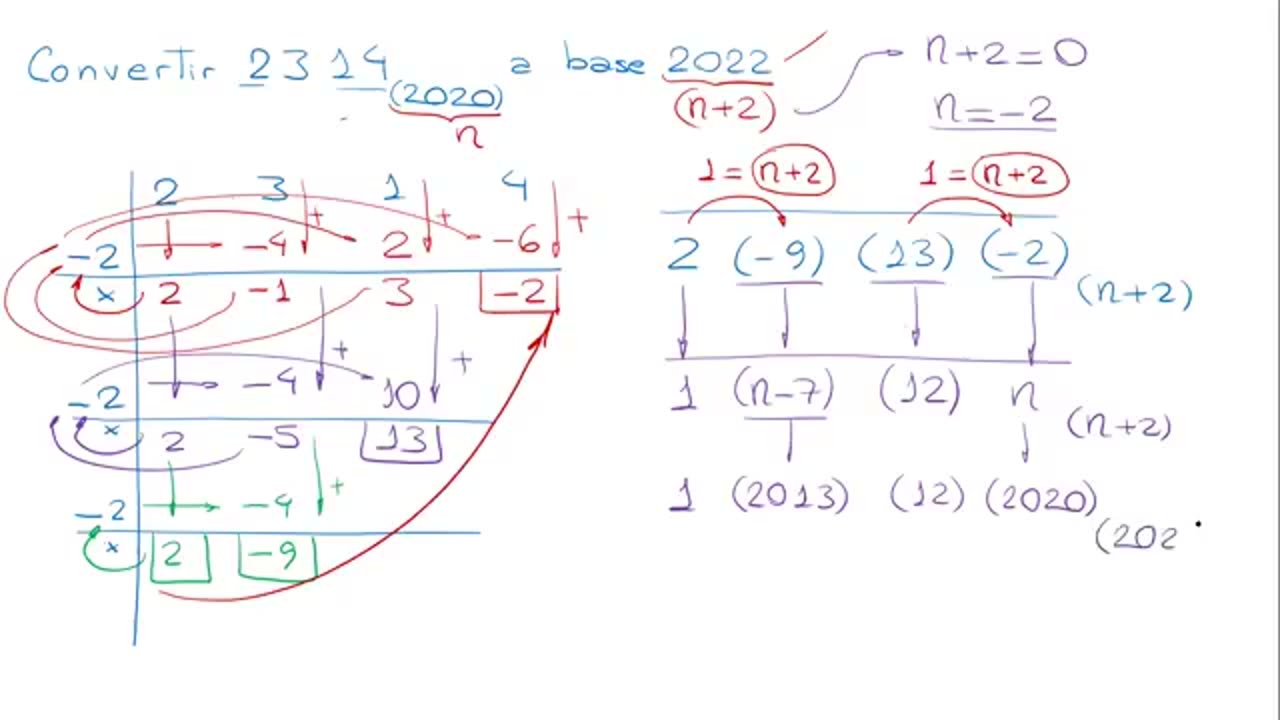 Convertir 2314(2020) a base 2022
n
(n+2)
n+2=0
n=-2
2 3 1 4
-2 -4 2 -6
+ + +
x 2 -1 3 -2
-2 -4 10
+ +
x 2 -5 13
-2 -4
+
x 2 -9
1=n+2 1=n+2
2 (-9) (13) (-2) (n+2)
1 (n-7) (12) n (n+2)
1 (2013) (12) (2020) (202